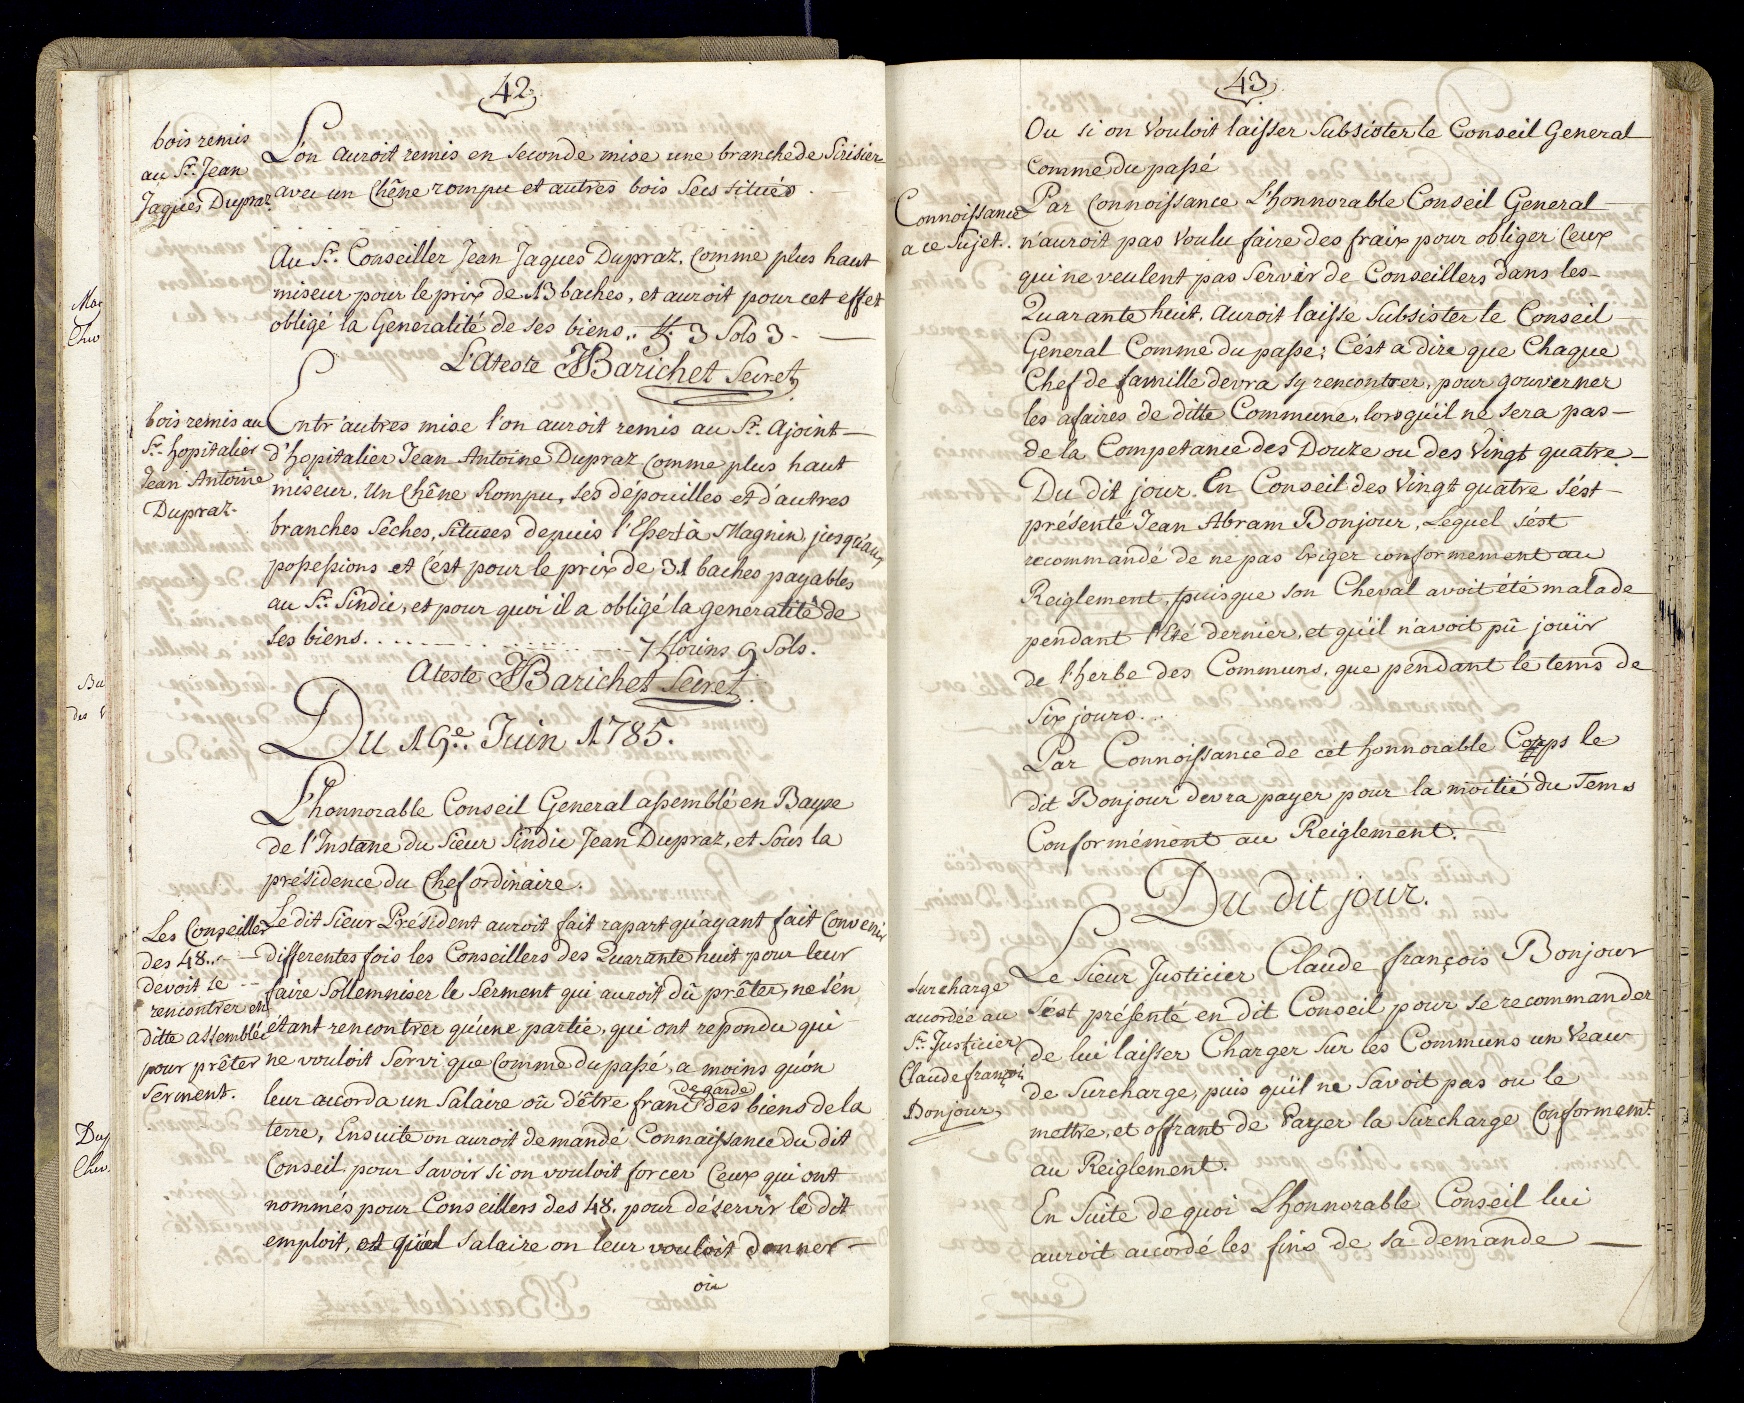 42.
bois remis
au Sr. Jean
Jaques Dupraz
L'on auroit remis en seconde mise une branche de Sirisier
avec un Chêne rompu et autres bois secs situés
Au Sr. Conseiller Jean Jaques Dupraz. Comme plus haut
miseur pour le prix de 13 baches, et auroit pour cet effet
obligé la Generalité de ses biens,. 3 Sols 3.
L'Ateste Barichet Secret
bois remis au
Sr. hopitalier
Jean Antoine
Dupraz.
Entr'autres mise l'on auroit remis au Sr. Ajoint
d'hopitalier Jean Antoine Dupraz comme plus haut
miseur. Un Chêne Rompu, ses dépouilles et d'autres
branches sêches, situées depuis l'Essert à Magnin, jusqu'aux
possessions et c'est pour le prix de 31 baches payables
au Sr. Sindic, et pour quoi il a obligé la generalité de
ses biens. 7 florins 9 Sols.
Ateste Barichet Secret
Du 19e. Juin 1785.
L'honnorable Conseil General assemblé en Bayse
de l'Instane du Sieur Sindic Jean Dupraz, et sous la
présidence du Chef ordinaire.
Les Conseiller
des 48..
devoit se
rencontrer en
ditte assemblé
pour prêter
serment.
Le dit Sieur Président auroit fait rapart qu'ayant fait Convenir
differentes fois les Conseillers des Quarante huit pour leur
faire sollemniser le Serment qui auroit dû prêter, ne s'en
étant rencontrer qu'une partie, qui ont repondu qui
ne vouloit Servi que Comme du passé, a moins qu'on
leur acorda un Salaire ou d'être franc de garde des biens de la
terre, Ensuite on auroit demandé Connaissance du dit
Conseil pour Savoir si on vouloit forcer Ceux qui ont
nommés pour Conseillers des 48. pour déservir le dit
emploit, et quel salaire on leur vouloit donner
ou
43.
Ou si on Vouloit laisser Subsister le Conseil General
comme du passé
Connoissance
a ce Sujet.
Par Connoissance L'honnorable Conseil General
n'auroit pas Voulu faire des fraix pour obliger Ceux
qui ne veulent pas Servir de Conseillers dans les
Quarante huit. Auroit laisse Subsister le Conseil
General Comme du passé; C'est a dire que Chaque
Chef de famille devra sy rencontrer, pour gouverner
les afaires de ditte Commune, lorsqu'il ne sera pas
de la Competance des Douze ou des Vingt quatre.
Du dit jour. En Conseil des Vingt quatre s'est
présenté Jean Abram Bonjour, Lequel s'est
recommandé de ne pas Exiger conformement au
Reiglement, puisque son Cheval avoit été malade
pendant l'Eté dernier, et qu'il n'avoit pû jouïr
de l'herbe des Communs, que pendant le tems de
Six jours...
Par Connoissance de cet honnorable Corps le
dit Bonjour devra payer pour la moitié du Tems
Conformément au Reiglement.
Du dit jour.
Surcharge
acordéé au
Sr. Justicier
Claude françoi
Bonjour,
Le Sieur Justicier Claude françois Bonjour
s'est présenté en dit Conseil pour se recommander
de lui laisser Charger sur les Communs un Veau
de Surcharge, puis qu'il ne Savoit pas ou le
mettre, et offrant de Payer la Surcharge Conformemt.
au Reiglement.
En Suite de quoi L'honnorable Conseil lui
auroit accordé les fins de sa demande